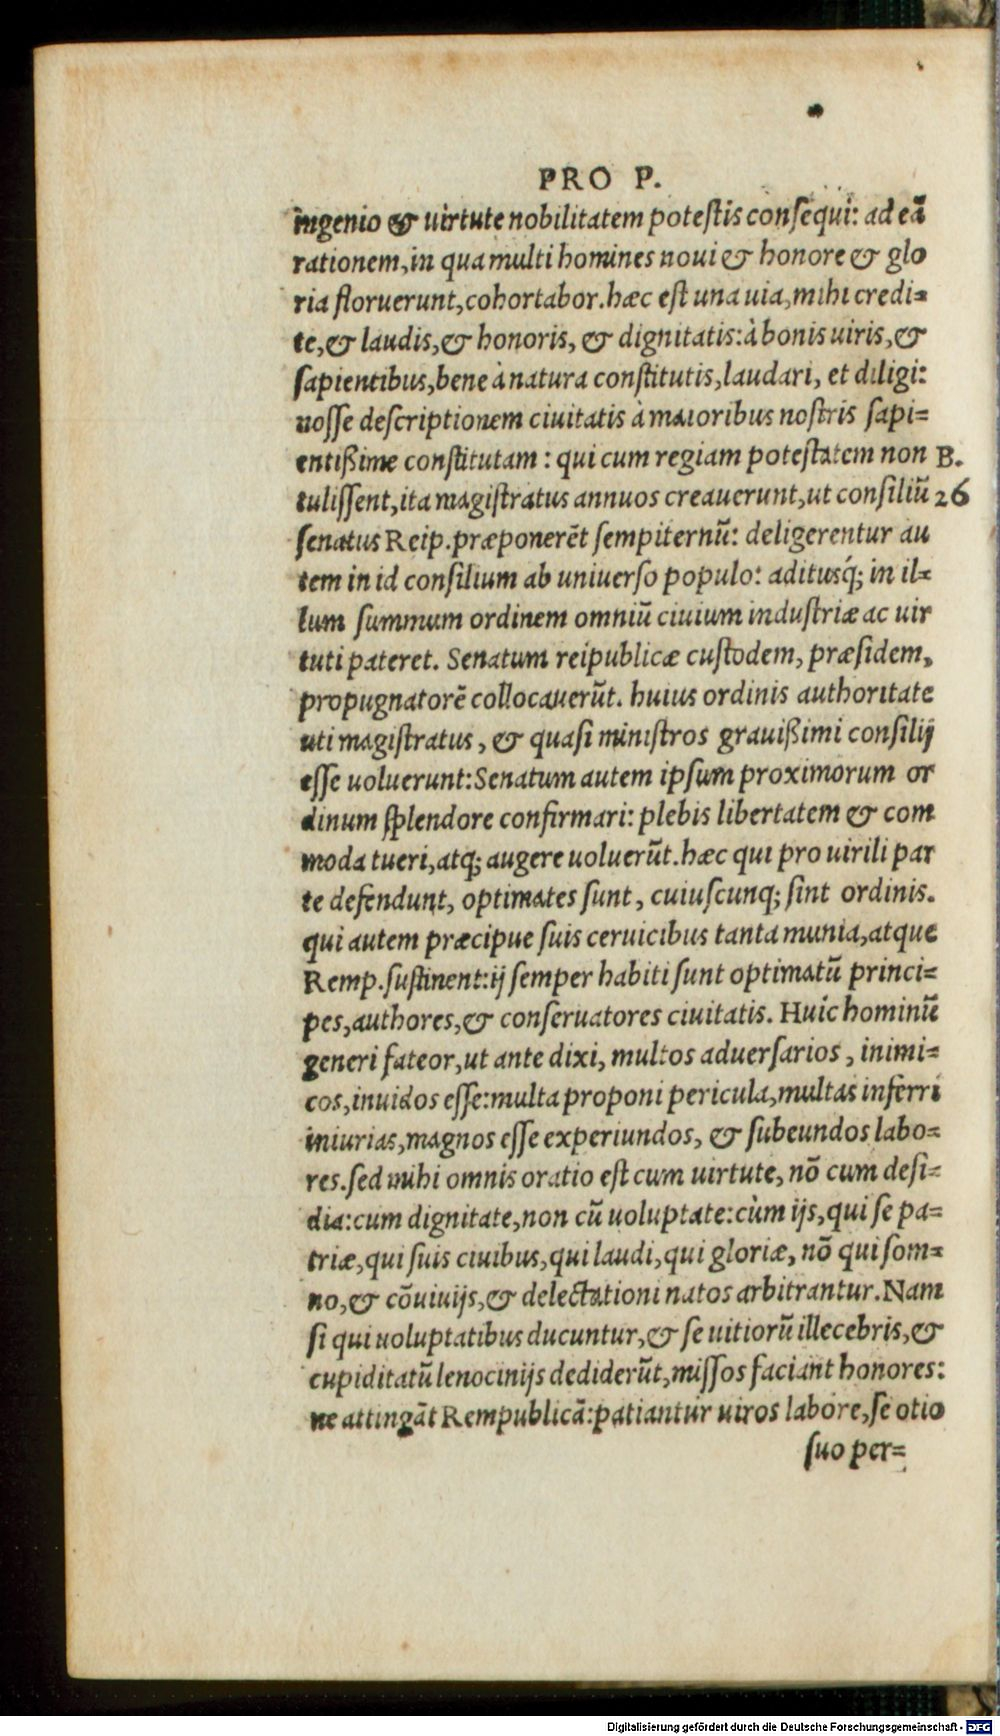 PRO P.
ingenio & uirtute nobilitatem potestis consequi: ad eã
rationem, in qua multi homines noui & honore & glo
ria floruerunt, cohortabor. hæc est una uia, mihi credi=
te, & laudis, & honoris, & dignitatis: à bonis uiris, &
sapientibus, bene à natura constitutis, laudari, et diligi:
nosse descriptionem ciuitatis à maioribus nostris sapi=
entißime constitutam: qui cum regiam potestatem non B.
tulissent, ita magistratus annuos creauerunt, ut consiliũ 26
senatus Reip. præponerẽt sempiternũ: deligerentur au
tem in id consilium ab uniuerso populo: aditusq́; in il=
lum summum ordinem omniũ ciuium industriæ ac uir
tuti pateret. Senatum reipublicæ custodem, præsidem,
propugnatorẽ collocauerũt. huius ordinis authoritate
uti magistratus, & quasi ministros grauißimi consilij
esse uoluerunt: Senatum autem ipsum proximorum or
dinum splendore confirmari: plebis libertatem & com
moda tueri, atq; augere uoluerũt. hæc qui pro uirili par
te defendunt, optimates sunt, cuiuscunq; sint ordinis.
qui autem præcipue suis ceruicibus tanta munia, atque
Remp. sustinent: ij semper habiti sunt optimatũ princi=
pes, authores, & conseruatores ciuitatis. Huic hominũ
generi fateor, ut ante dixi, multos aduersarios, inimi=
cos, inuidos esse: multa proponi pericula, multas inferri
iniurias, magnos esse experiundos, & subeundos labo=
res. sed mihi omnis oratio est cum uirtute, nõ cum desi=
dia: cum dignitate, non cũ uoluptate: cùm ijs, qui se pa=
triæ, qui suis ciuibus, qui laudi, qui gloriæ, nõ qui som=
no, & cõuiuijs, & delectationi natos arbitrantur. Nam
si qui uoluptatibus ducuntur, & se uitiorũ illecebris, &
cupiditatũ lenocinijs dediderũt, missos faciant honores:
ne attingãt Rempublicã: patiantur uiros labore, se otio
suo per=
Digitalisierung gefördert durch die Deutsche Forschungsgemeinschaft - DFG